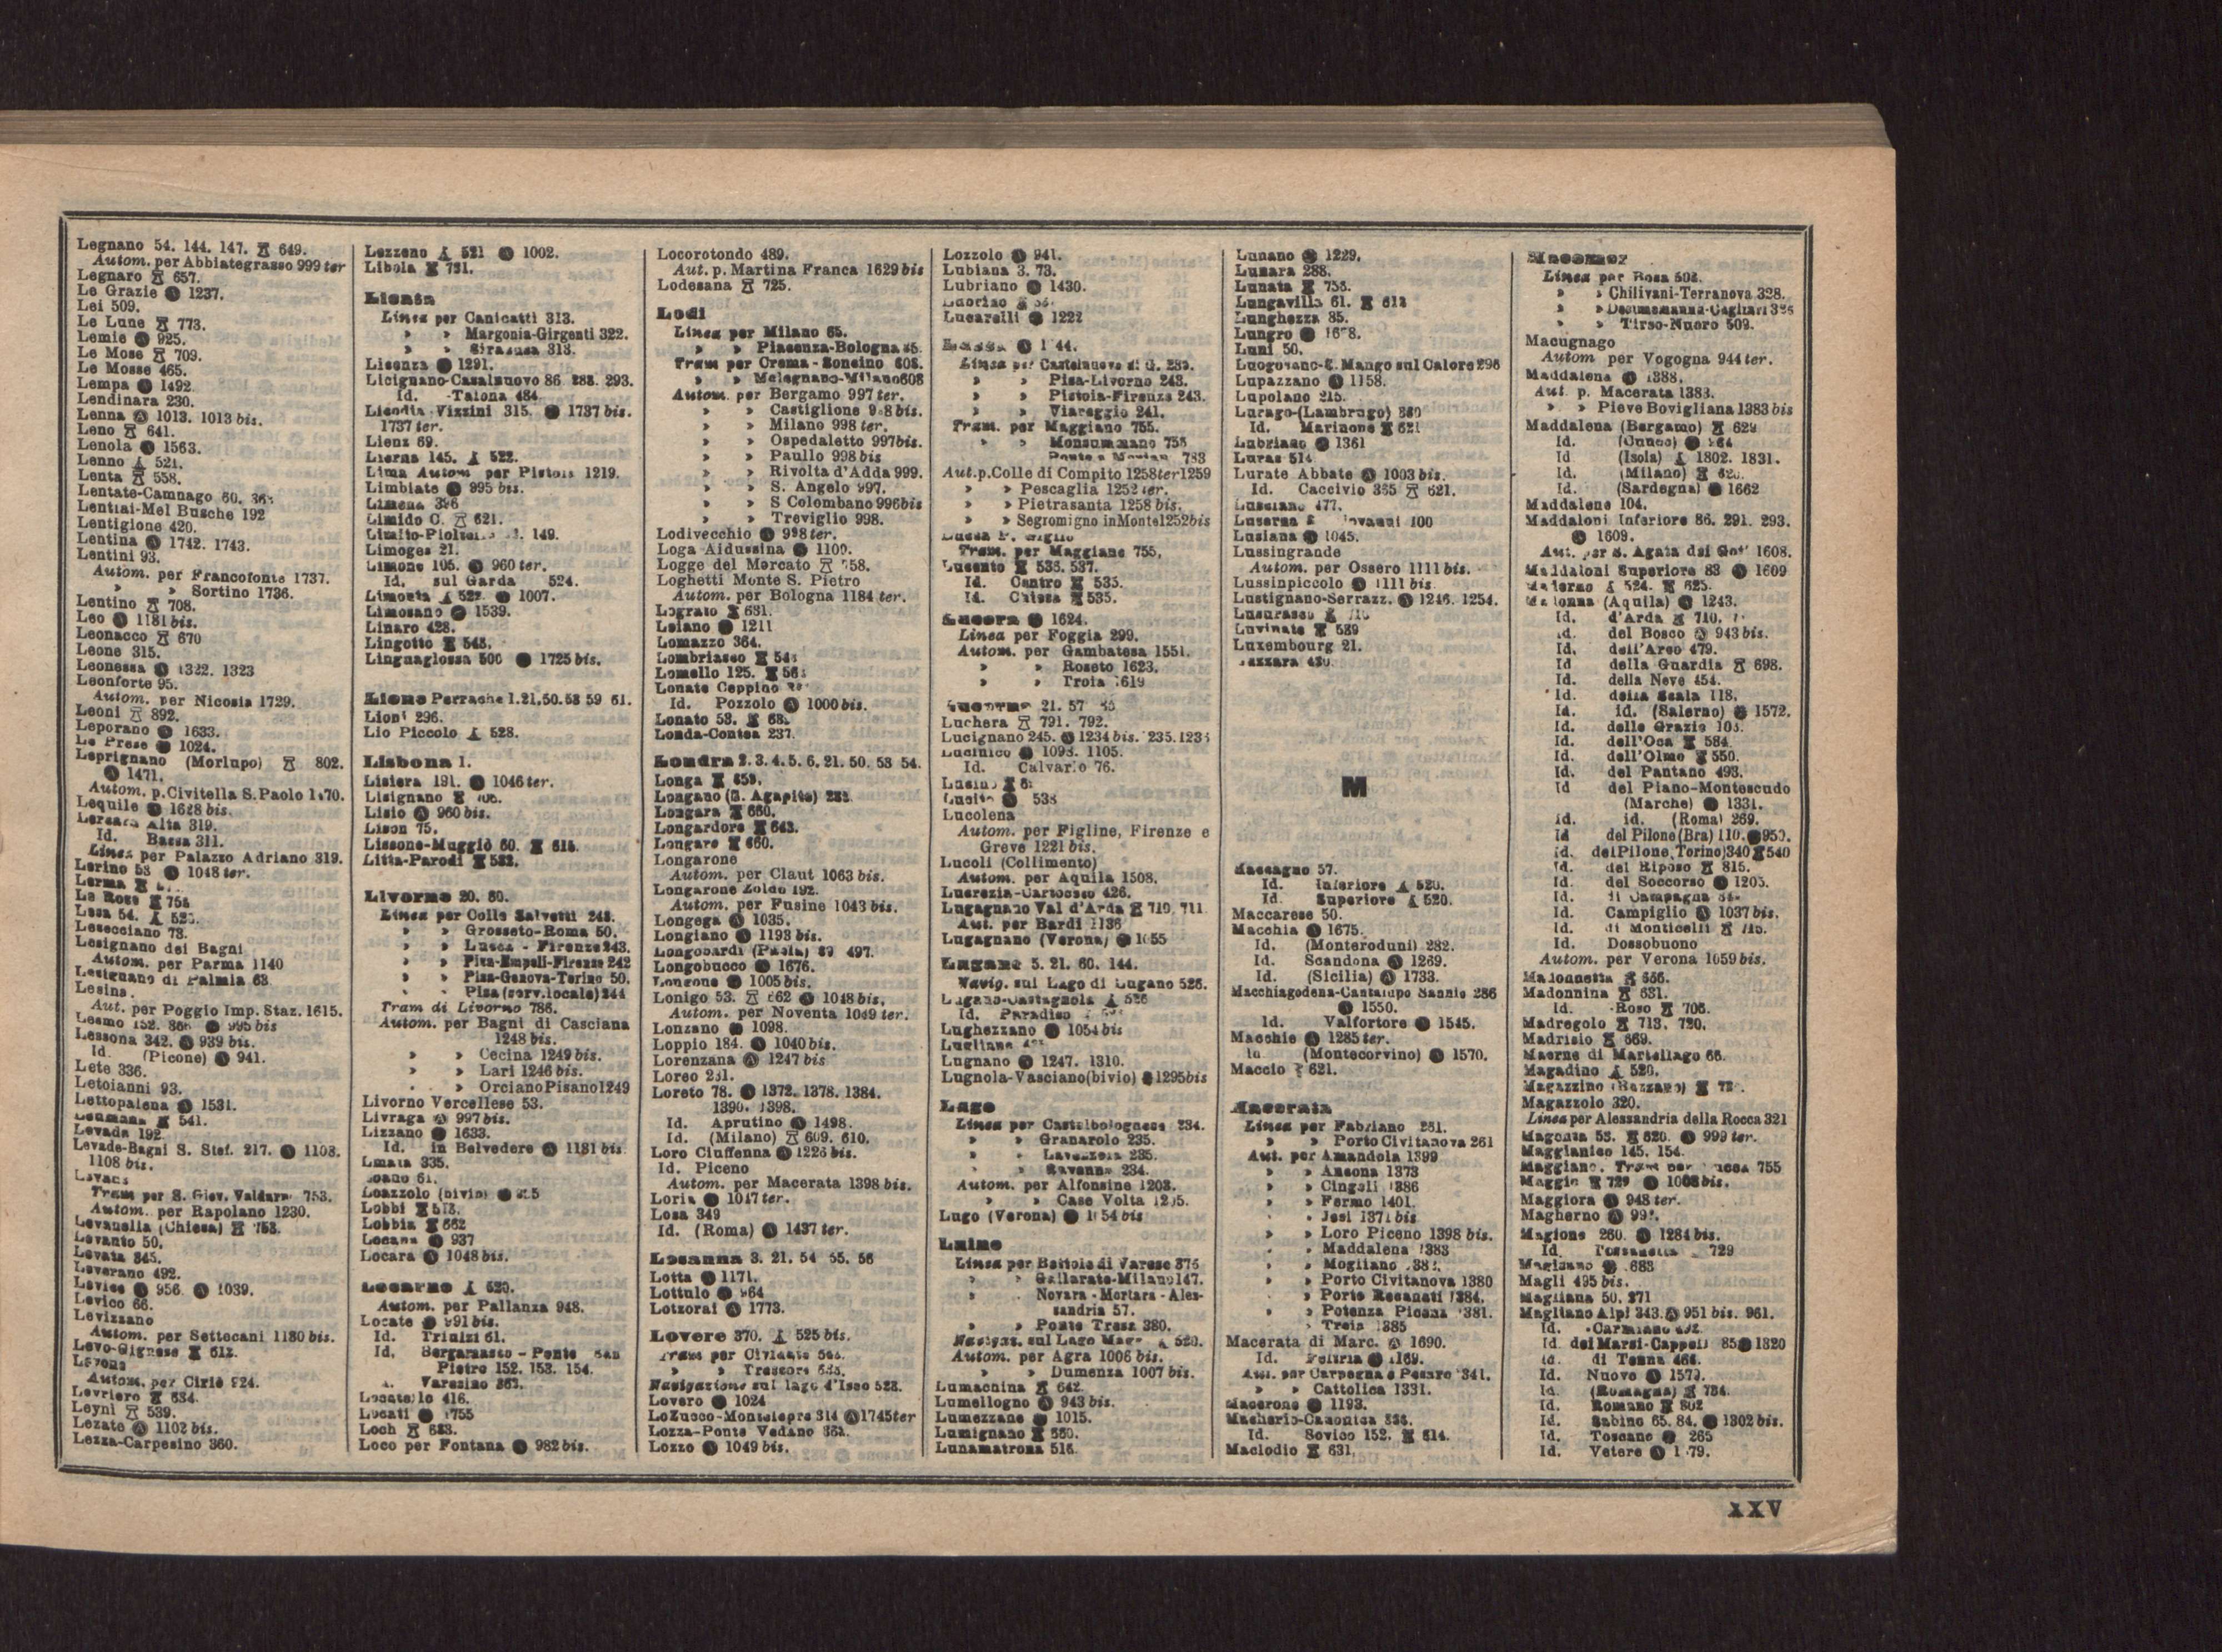 Legnano 54. 144. 147. 649.
Autom. per Abbiategrasso 999 ter
Legnaro 657.
Le Grazie 1237.
Lei 509.
Le Lune 773.
Lemie 925.
Le Mose 709.
Le Mosse 465.
Lempa 1492.
Lendinara 230.
Lenna 1013. 1013 bis.
Leno 641.
Lenola 1563.
Lenno 521.
Lenta 558.
Lentate-Camnago 60.
Lentiai-Mel Busche 192
Lentigione 420.
Lentina 1742. 1743.
Lentini 93.
Autom. per Francofonte 1737.
» » Sortino 1736.
Lentino 708.
Leo 1181 bis.
Leonacco 670
Leone 315.
Leonessa 1322. 1323
Leonforte 95.
Autom. per Nicosia 1729.
Leoni 892.
Leporano 1633.
Le Prese 1024.
Leprignano (Morlupo) 802.
1471.
Autom. p. Civitella S. Paolo 1470.
Lequile 1628 bis.
Lercara Alta 319.
Id. Bassa 311.
Linea per Palazzo Adriano 319.
Lerino 53 1048 ter.
Lerma
Le Rose
Lesa 54.
Lesecciano 78.
Lesignano dei Bagni
Autom. per Parma 1140
Lesignano di Palmia 63
Lesina.
Aut. per Poggio Imp. Staz. 1615.
Lesmo 152. 995 bis
Lessona 342. 939 bis.
Id. (Picone) 941.
Lete 336.
Letoianni 93.
Lettopalena 1531.
541.
Levada 192
Levade-Bagni S. Stef. 217. 1108.
1108 bis.
Tram per S. Giov. Valdarno 753.
Autom. per Rapolano 1230.
Levanella (Chiesa) 753.
Levanto 50.
Levata 345.
Leverano 492.
Levice 956. 1039.
Levico 66.
Levizzano
Autom. per Settecani 1180 bis.
Levo-Gignese 612.
Levone
Autom. per Ciriè 924.
Levriero 634.
Leynì 539.
Lezate 1102 bis.
Lezza-Carpesino 360.
Lezzeno 521 1002.
Libola 731.
Licata
Linea per Canicattì 313.
» » Margonia-Girgenti 322.
» » Siracusa 313.
Licenza 1291.
Licignano-Casalnuovo 86. 288. 293.
Id. -Talona 484
Licodia-Vizzini 315. 1737 bis.
1737 ter.
Lienz 69.
Lierna 145. 522.
Lima Autom. per Pistoia 1219.
Limbiate 995 bis.
Limena 396
Limido C. 621.
Limito-Pioltello 149.
Limoges 21.
Limone 105. 960 ter.
Id. sul Garda 524.
Limonta 522. 1007.
Limosano 1539.
Linaro 428.
Lingotto 548.
Linguaglossa 500 1725 bis.
Lione Perrache 1. 21. 50. 58 59 61.
Lioni 296.
Lio Piccolo 528.
Lisbona 1.
Lisiera 191. 1046 ter.
Lisignano
Lisio 960 bis.
Lison 75.
Lissone-Muggiò 60. 615.
Litta-Parodi 582.
Livorno 20. 80.
Linea per Colle Salvetti 243.
» » Grosseto-Roma 50.
» » Lucca - Firenze 243.
» » Pisa-Empoli-Firenze 242
» » Pisa-Genova-Torino 50.
» Pisa (serv. locale) 244
Tram di Livorno 786.
Autom. per Bagni di Casciana
1248 bis.
» » Cecina 1249 bis.
» » Lari 1246 bis.
» Orciano Pisano 1249
Livorno Vercellese 53.
Livraga 997 bis.
Lizzano 1633.
Id. in Belvedere 1181 bis.
Lmata 335.
Loano 61.
Loazzolo (bivio)
Lobbi 578.
Lobbia 662
Locana 937
Locara 1048 bis.
Locarno 520.
Autom. per Pallanza 948.
Locate 991 bis.
Id. Triulzi 61.
Id. Bergamasco - Ponte
Pietro 152. 153. 154.
Varesino 363.
Locatello 416.
Locati 1755
Loch 683.
Loco per Fontana 982 bis.
Locorotondo 489.
Aut. p. Martina Franca 1629 bis
Lodesana 725.
Lodi
Linea per Milano 65.
» » Piacenza-Bologna 65.
Tram per Crema - Soncino 608.
» » Melegnano-Milano 608
Autom. per Bergamo 997 ter.
» » Castiglione 998 bis.
» » Milano 998 ter.
» » Ospedaletto 997 bis.
» » Paullo 998 bis
» » Rivolta d'Adda 999.
» » S. Angelo 997.
» » S Colombano 996 bis
» » Treviglio 998.
Lodivecchio 998 ter.
Loga Aidussina 1100.
Logge del Mercato 758.
Loghetti Monte S. Pietro
Autom. per Bologna 1184 ter.
Lograto 631.
Loiano 1211
Lomazzo 364.
Lombriasco
Lomello 125.
Lonate Ceppino
Id. Pozzolo 1000 bis.
Lonato 53.
Londa-Contea 237.
Londra 2. 3. 4. 5. 6. 21. 50. 53 54.
Longa 659.
Longano (S. Agapito) 282.
Longara 660.
Longardore 643.
Longare 660.
Longarone
Autom. per Claut 1063 bis.
Longarone Zoldo 192.
Autom. per Fusine 1043 bis.
Longega 1035.
Longiano 1193 bis.
Longobardi (Paola) 89 497.
Longobucco 1676.
Longone 1005 bis.
Lonigo 53. 662 1048 bis.
Autom. per Noventa 1049 ter.
Lonzano 1098.
Loppio 184. 1040 bis.
Lorenzana 1247 bis
Loreo 231.
Loreto 78. 1372. 1378. 1384.
1390. 1398.
Id. Aprutino 1498.
Id. (Milano) 609. 610.
Loro Ciuffenna 1226 bis.
Id. Piceno
Autom. per Macerata 1398 bis.
Loria 1047 ter.
Losa 349
Id. (Roma) 1437 ter.
Losanna 3. 21. 54 55. 56
Lotta 1171.
Lottulo 964
Lotzorai 1773.
Lovere 370. 525 bis.
Tram per Cividate
» » Trescore
Navigazione sul lago d'Iseo 523.
Lovero 1024
Lo Zucco-Montelepre 314 1745 ter
Lozza-Ponte Vedano 363.
Lozzo 1049 bis.
Lozzolo 941.
Lubiana 3. 73.
Lubriano 1430.
Lucarelli 1222
Lucca
Linea per Castelnuovo di G. 239.
» » Pisa-Livorno 243.
» » Pistoia-Firenze 243.
» » Viareggio 241.
Tram. per Maggiano 755.
» » Monsummano 755
Ponte a Moriano 783
Aut. p. Colle di Compito 1258 ter 1259
» » Pescaglia 1252 ter.
» » Pietrasanta 1258 bis.
» » Segromigno in Monte 1252 bis
Tram. per Maggiano 755.
Lucento 536. 537.
Id. Centro 535.
Id. Chiesa 535.
Lucera 1624.
Linea per Foggia 299.
Autom. per Gambatesa 1551.
» » Roseto 1623.
» » Troia 1619
Lucerna 21. 57
Luchera 791. 792.
Lucignano 245. 1234 bis. 1235.
Lucinico 1093. 1105.
Id. Calvario 76.
Lucito 538
Lucolena
Autom. per Figline, Firenze e
Greve 1221 bis.
Lucoli (Collimento)
Autom. per Aquila 1508.
Lucrezia-Cartoceto 426.
Lugagnano Val d'Arda 710. 711
Aut. per Bardi 1136
Lugagnano (Verona) 1055
Lugano 5. 21. 60. 144.
Navig. sul Lago di Lugano 526.
Lugano-Castagnola 526
Id. Paradiso
Lughezzano 1054 bis
Lugliano
Lugnano 1247. 1310.
Lugnola-Vasciano (bivio) 1295 bis
Lugo
Linea per Castelbolognese 234.
» » Granarolo 235.
» » Lavezzola 235.
» Ravenna 234.
Autom. per Alfonsine 1203.
» » Case Volta 1205.
Lugo (Verona) 1054 bis
Luino
Linea per Bettole di Varese 376
» » Gallarate-Milano 147.
» Novara - Mortara - Ales-
sandria 57.
» » Ponte Tresa 380.
Navigaz. sul Lago Magg. 520.
Autom. per Agra 1006 bis.
» » Dumenza 1007 bis.
Lumachina 642.
Lumellogno 943 bis.
Lumezzane 1015.
Lumignano 660.
Lunamatrona 516.
Lunano 1229.
Lunara 288.
Lunata 755.
Lungavilla 61. 613
Lunghezza 85.
Lungro
Luni 50.
Luogosano-S. Mango sul Calore 296
Lupazzano 1158.
Lupolano 215.
Lurago-(Lambrugo) 360
Id. Marinone 621
Lubriano 1361
Luras 514
Lurate Abbate 1003 bis.
Id. Caccivio 365 621.
Lusciano 477.
Luserna S. Giovanni 100
Lusiana 1045.
Lussingrande
Autom. per Ossero 1111 bis.
Lussinpiccolo 1111 bis
Lustignano-Serrazz. 1246. 1254.
Lusurasco
Luvinate 589
Luxembourg 21.
Luzzara 430.
M
Maccagno 57.
Id. Inferiore 520.
Id. Superiore 520.
Maccarese 50.
Macchia 1675.
Id. (Monteroduni) 282.
Id. Scandona 1269.
Id. (Sicilia) 1733.
Macchiagodena-Cantalupo Sannio 286
1550.
Id. Valfortore 1545.
Macchie 1285 ter.
Id (Montecorvino) 1570.
Maccio 621.
Macerata
Linea per Fabriano 261.
» » Porto Civitanova 261
Aut. per Amandola 1399
» » Ancona 1373
» » Cingoli 1386
» » Fermo 1401.
» Jesi 1371 bis
» » Loro Piceno 1398 bis.
» Maddalena 1383
» » Mogliano
» » Porto Civitanova 1380
» Porto Recanati 1384.
» » Potenza Picena 1381.
» Treia 1385
Macerata di Marc. 1690.
Id. Feltria 1169.
Aut. per Carpegna e Pesaro 1341.
» » Cattolica 1331.
Macerone 1193.
Macherio-Canonica
Id. Sovico 152. 614.
Maclodio 631.
Macomer
Linea per Bosa 508.
» » Chilivani-Terranova 328.
» » Decimomannu-Cagliari
» » Tirso-Nuoro 509.
Macugnago
Autom per Vogogna 944 ter.
Maddalena 1388.
Aut. p. Macerata 1383.
» » Pieve Bovigliana 1383 bis
Maddalena (Bergamo) 629
Id. (Cuneo)
Id (Isola) 1802. 1831.
Id. (Milano)
Id. (Sardegna) 1662
Maddalene 104.
Maddaloni Inferiore 86. 291. 293.
1609.
Aut. per S. Agata dei Got' 1608.
Maddaloni Superiore 83 1609
Maderno 524. 625.
Madonna (Aquila) 1243.
Id. d'Arda 710.
Id. del Bosco 943 bis.
Id. dell'Arco 479.
Id della Guardia 698.
Id. della Neve 454.
Id. della Scala 118.
Id. id. (Salerno) 1572.
Id. delle Grazie 103.
Id. dell'Oca 584
Id. dell'Olmo 550.
Id. del Pantano 493.
Id del Piano-Montescudo
(Marche) 1331.
Id. id. (Roma) 269.
Id del Pilone (Bra) 110. 950.
Id. del Pilone (Torino) 340 540
Id. del Riposo 815.
Id. del Soccorso 1205.
Id. di Campagna
Id. Campiglio 1037 bis.
Id. di Monticelli 715.
Id. Dossobuono
Autom. per Verona 1059 bis.
Madonnetta 666.
Madonnina 631.
Id. -Roso 706.
Madregolo 713. 720.
Madrisio 669.
Maerne di Martellago 66.
Magadino 520.
Magazzino (Bazzano)
Magazzolo 320.
Linea per Alessandria della Rocca 321
Magenta 53. 620. 999 ter.
Maggianico 145. 154.
Maggiano. Tram per Lucca 755
Maggio 729 1008 bis.
Maggiora 948 ter.
Magherno
Magione 260. 1284 bis.
Id. Tossanella 729
Magisano 1683
Magli 495 bis.
Magliana 50. 271
Magliano Alpi 343. 951 bis. 961.
Id. -Carmiano 492.
Id dei Marsi-Cappelli 85 1320
Id. di Tenna 466.
Id. Nuovo 1579.
Id. (Romagna) 784.
Id. Romano 802
Id. Sabino 65. 84. 1302 bis.
Id. Toscano 265
Id. Vetere
XXV